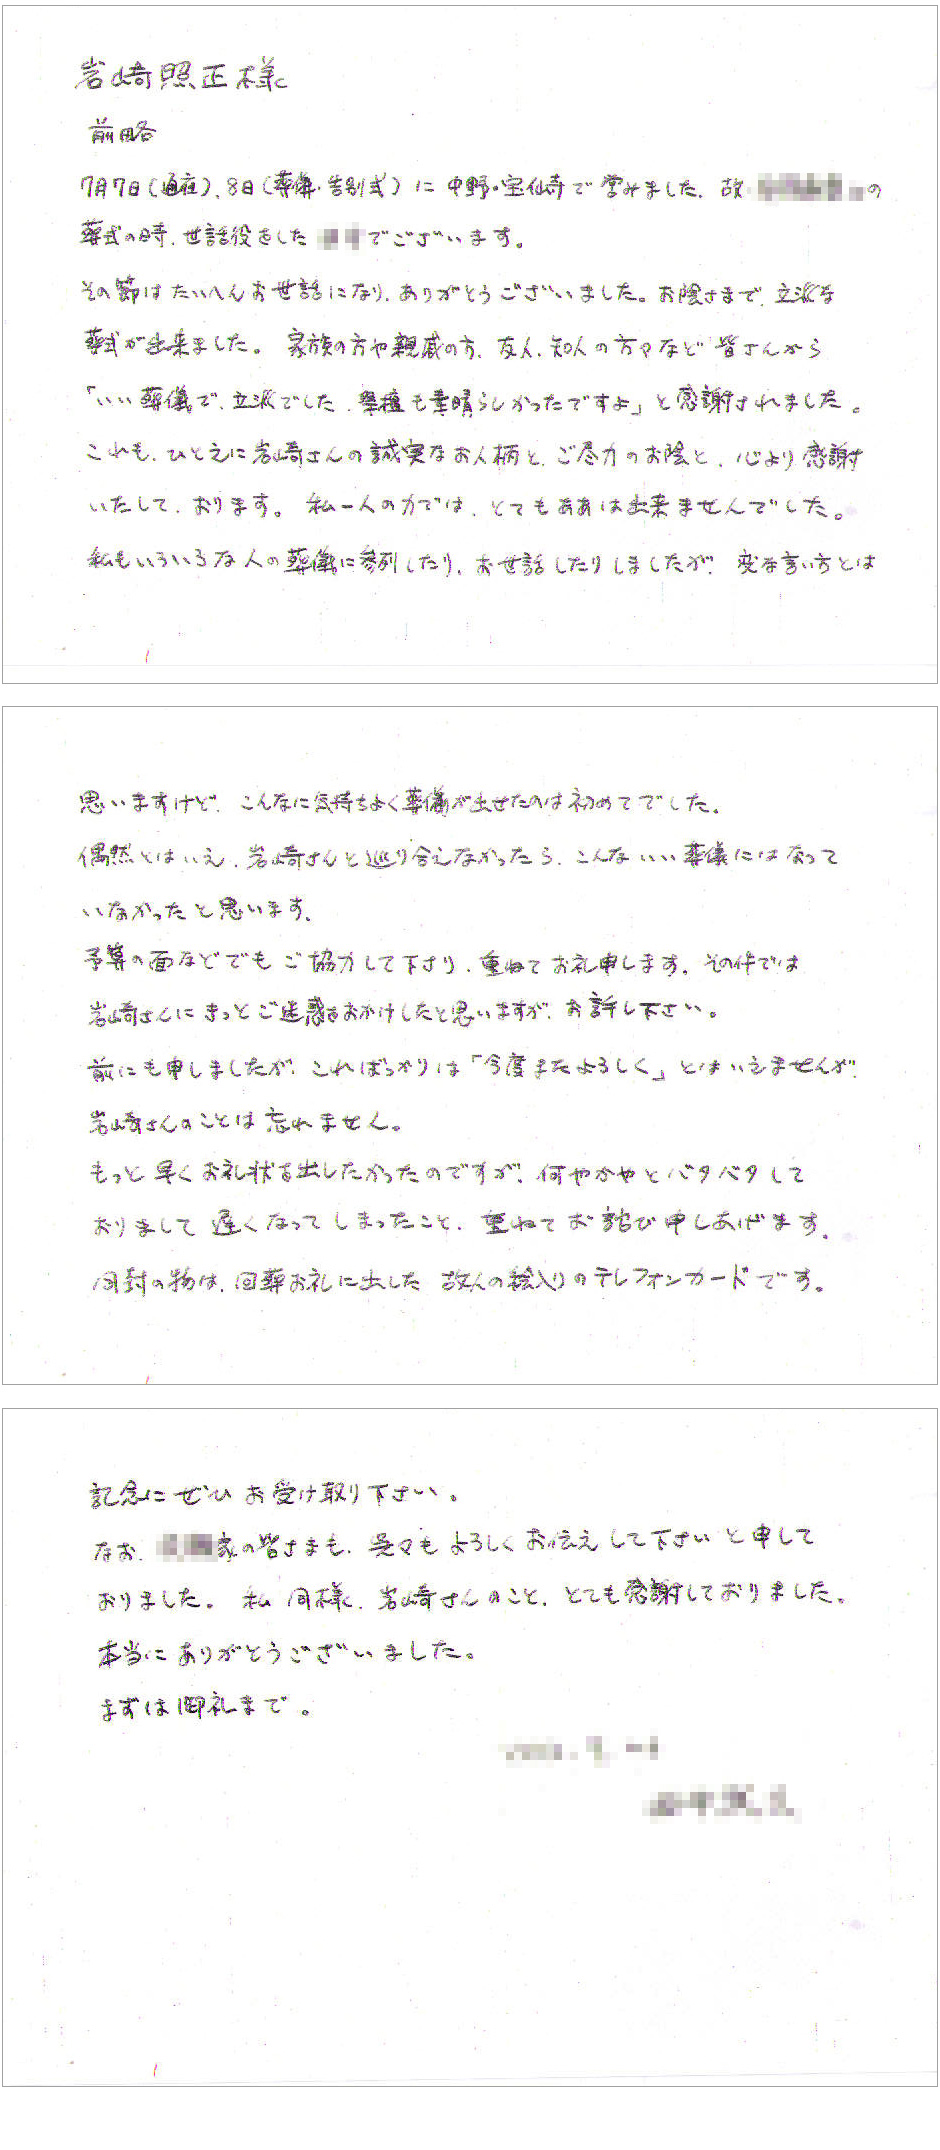 岩崎照正様
前略
7月7日(通夜)、8日(葬儀・告別式)に中野・宝仙寺で営みました、故 の
葬式の時、世話役をした でございます。
その節はたいへんお世話になり、ありがとうございました。お陰さまで、立派な
葬式が出来ました。家族の方や親戚の方、友人、知人の方々など皆さんから
「いい葬儀で、立派でした、祭壇も素晴らしかったですよ」と感謝されました。
これも、ひとえに岩崎さんの誠実なお人柄と、ご尽力のお陰と、心より感謝
いたして、おります。私一人の力では、とてもああは出来ませんでした。
私もいろいろな人の葬儀に参列したり、お世話したりしましたが、変な言い方とは
思いますけど、こんなに気持ちよく葬儀が出せたのは初めてでした。
偶然とはいえ、岩崎さんと巡り合えなかったら、こんないい葬儀にはなって
いなかったと思います。
予算の面などでもご協力して下さり、重ねてお礼申します。その件では
岩崎さんにきっとご迷惑をおかけしたと思いますが、お許し下さい。
前にも申しましたが、こればっかりは「今度またよろしく」とはいえませんが、
岩崎さんのことは忘れません。
もっと早くお礼状を出したかったのですが、何やかやとバタバタして
おりまして遅くなってしまったこと、重ねてお詫び申しあげます。
同封の物は、回葬お礼に出した故人の絵入りのテレフォンカードです。
記念にぜひお受け取り下さい。
なお、 家の皆さまも、呉々もよろしくお伝えして下さいと申して
おりました。私同様、岩崎さんのこと、とても感謝しておりました。
本当にありがとうございました。
まずは御礼まで。